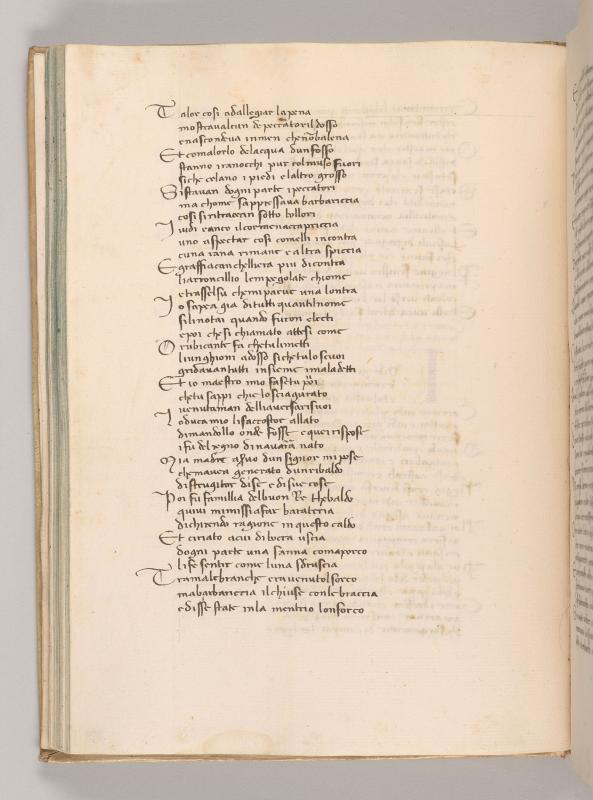 Talor cosi adallegiar lapena
mostravalcun de peccatoril dosso
enascondeva inmen chenõbalena
Et comalorlo delacqua dunfosso
stanno iranocchi pur colmuso fuori
siche celano i piedi elaltro grosso
Sistavan dogni parte ipeccatori
ma chome sappressava barbariccia
cosi siritraean sotto bollori
Ividi eanco ilcormenaccapriccia
uno aspectar cosi comelli incontra
cuna rana rimane ealtra spiccia
Egraffiacanchelliera piu dicontra
liarroncillio lempegolate chiome
etrasselsu chemiparve una lontra
Io sapea gia ditutti quantilnome
silinotai quando furon electi
epoi chesi chiamato attesi come
O rubicante fa chetulimetti
liunghioni adosso sichetuloscuoi
gridavantutti insieme imaladetti
Et io maestro mio fasetu põi
chetu sappi chie losciagurato
ivenutaman delliaversarisuoi
Loducamio lisaccostoe allato
dimandollo onde fosse equeirispose
ifu del regno dinavarã nato
Mia madre aservo dun signor mipose
chemavea generato dunribaldo
distrugitor dise edisue cose
Poi fu famillia delbuon Re thebaldo
quivi mimissiafar barateria
dichirendo ragione in questo caldo
Et ciriato acui dibocca uscia
dogni parte una sanna comaporco
life sentir come luna sdruscia
Tramalebranche eravenutolsorco
mabarbariccia ilchiuse conlebraccia
edisse state inla mentrio lonforco